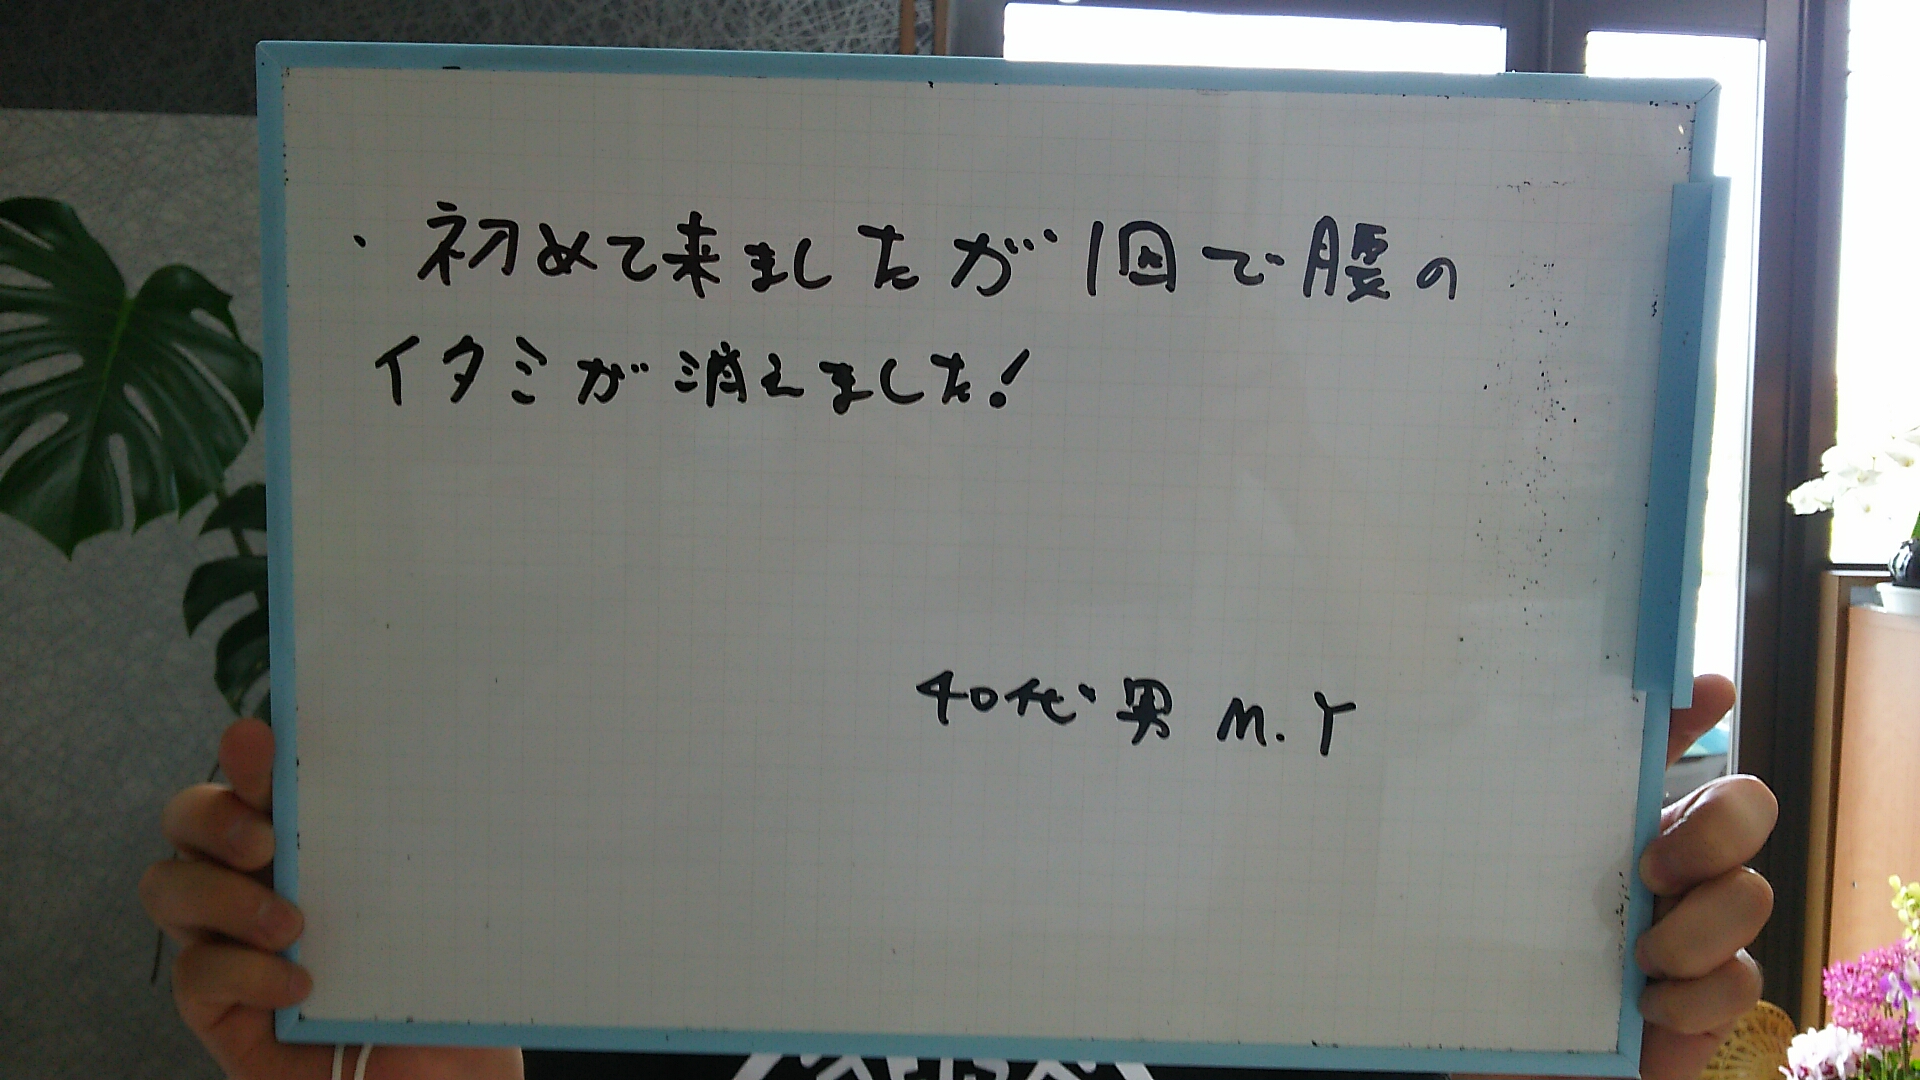 ・初めて来ましたが1回で腰の
イタミが消えました!
40代 男 M.Y